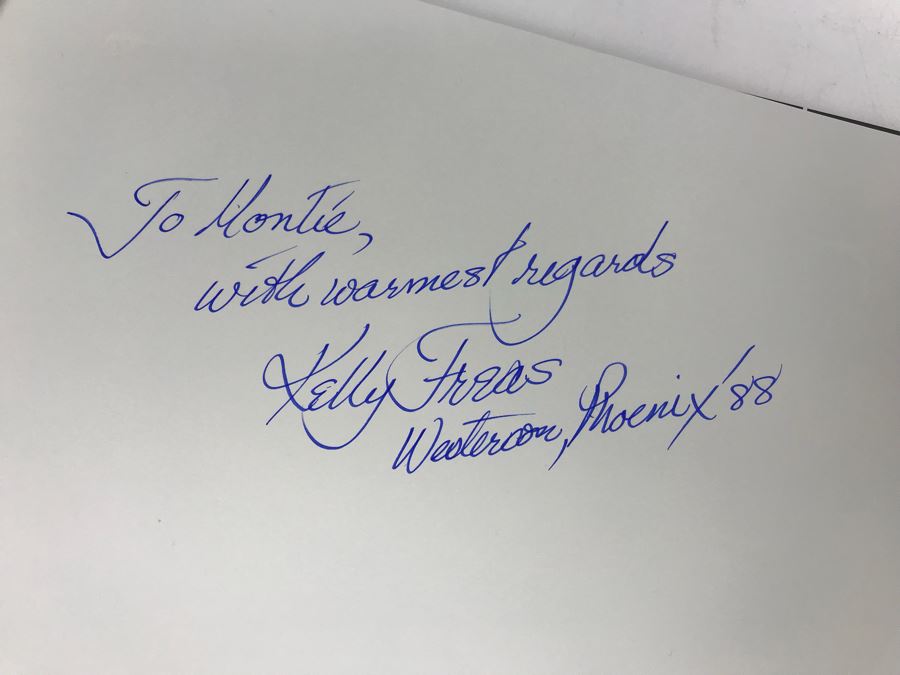 To Montie,
with warmest regards
Kelly Freas
Westercon, Phoenix '88